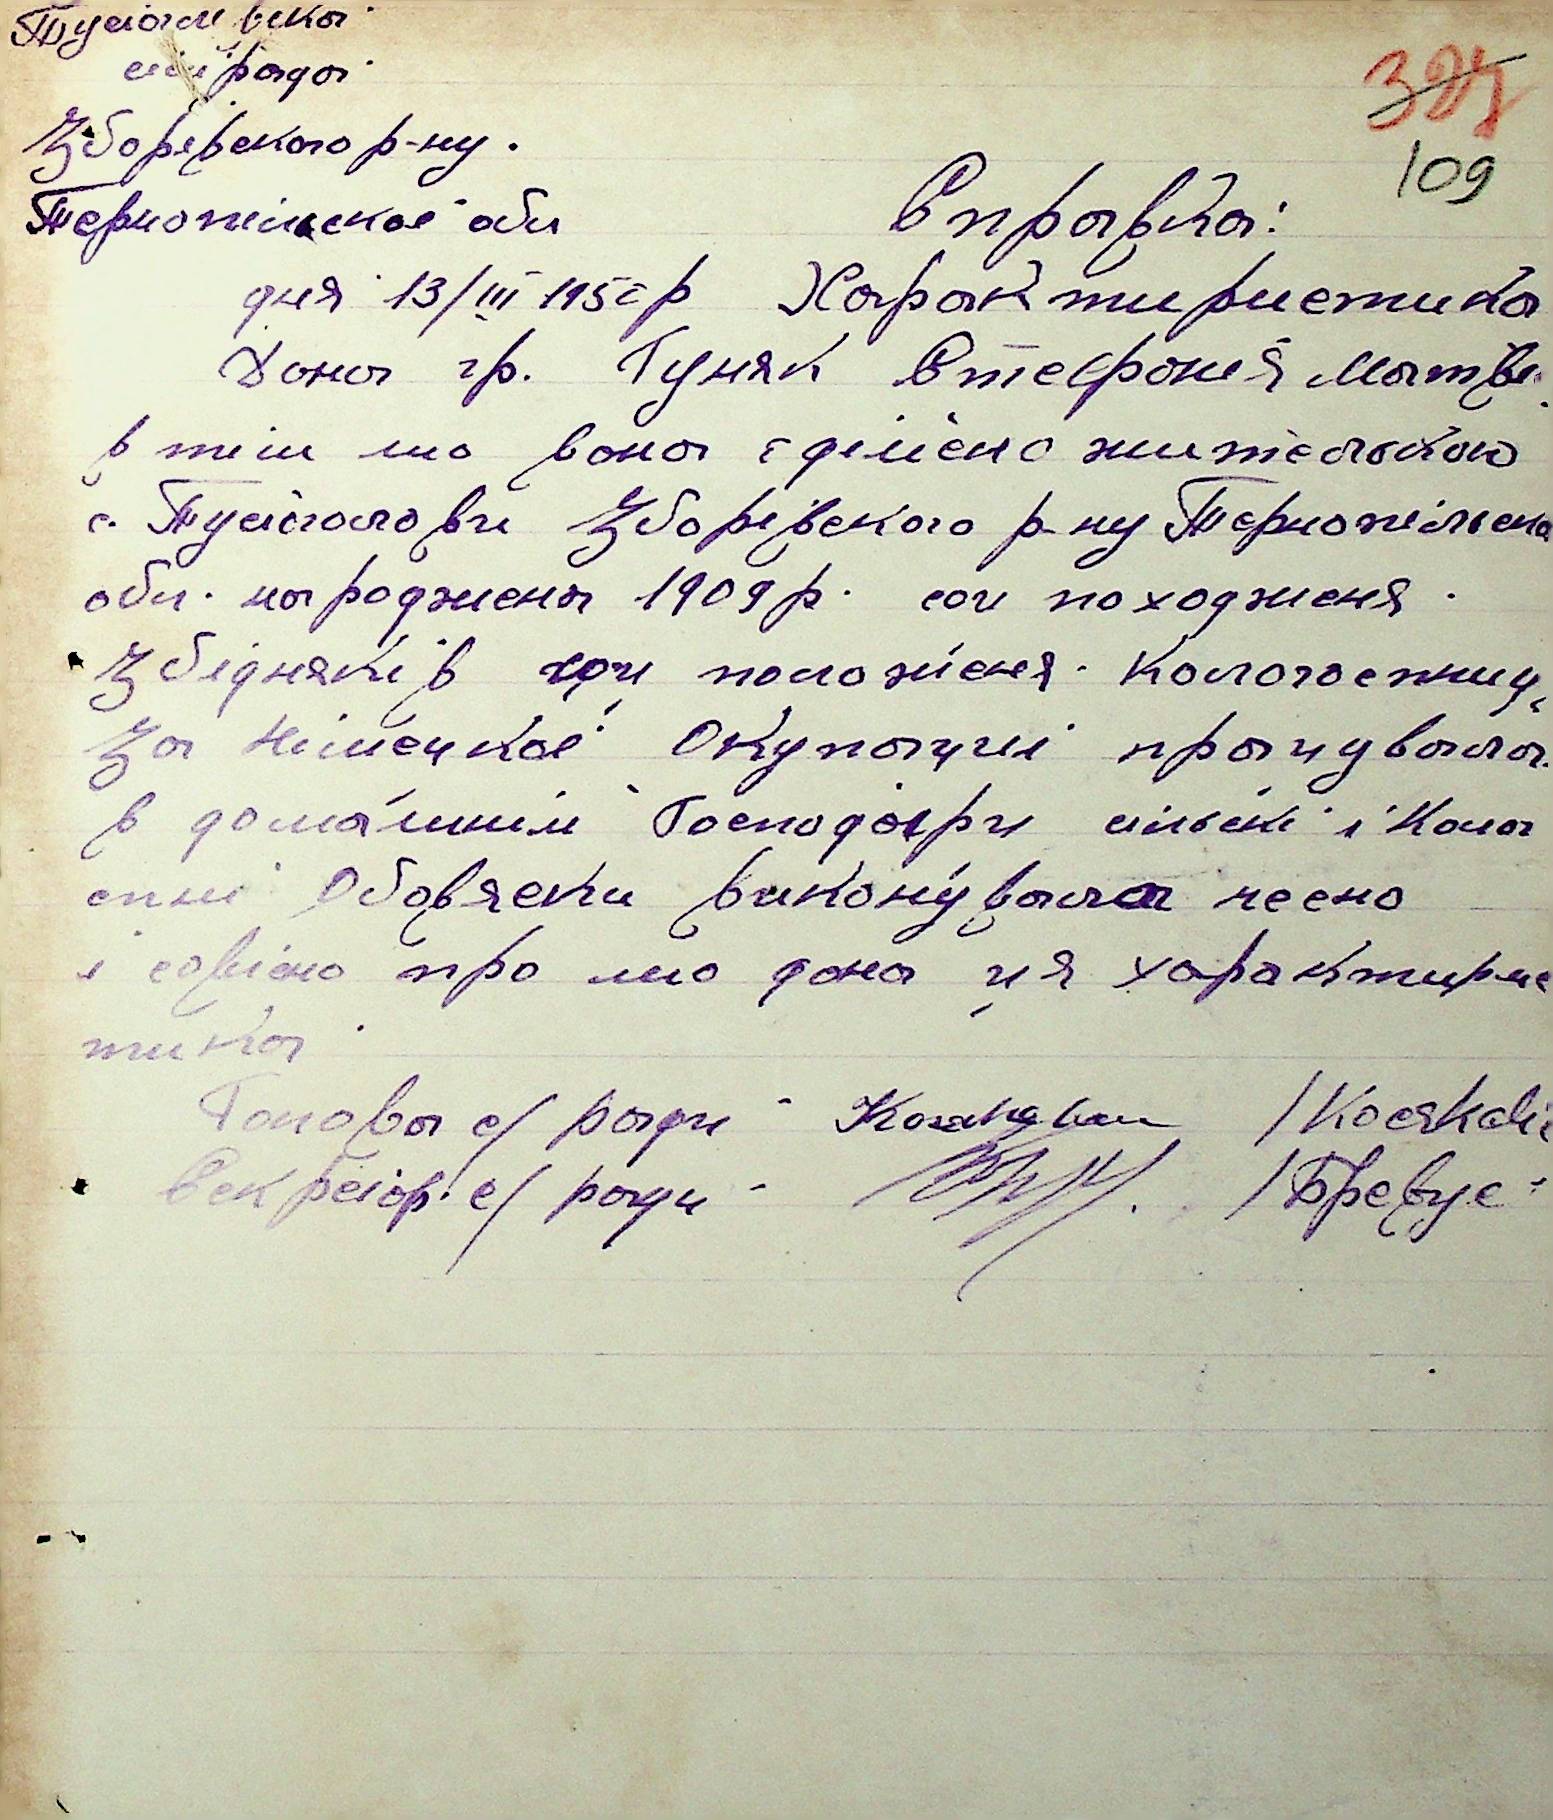 Тустоголівська
сіл рада
Зборівського р-ну.
Тернопільскоє обл
327
109
Справка:
дня 13/III 195 р Характиристика
Дана гр. Гуняк Стефанія Матве
в тім що вона є дійсно жителькою
с. Тустоголови Зборівского р-ну Тернопільско
обл. народжена 1909 р. соц походженя.
Збідняків соц положеня. Колгоспниця
За Німецкоє Окупації працувала.
в домашнім Господарстві сільскі і Колго
спні Обовяски виконувала чесно
і совісно про що дана ця характирис
тика
Голова с/ ради - /Косякевіч
Секретар с/ ради - /Бревус